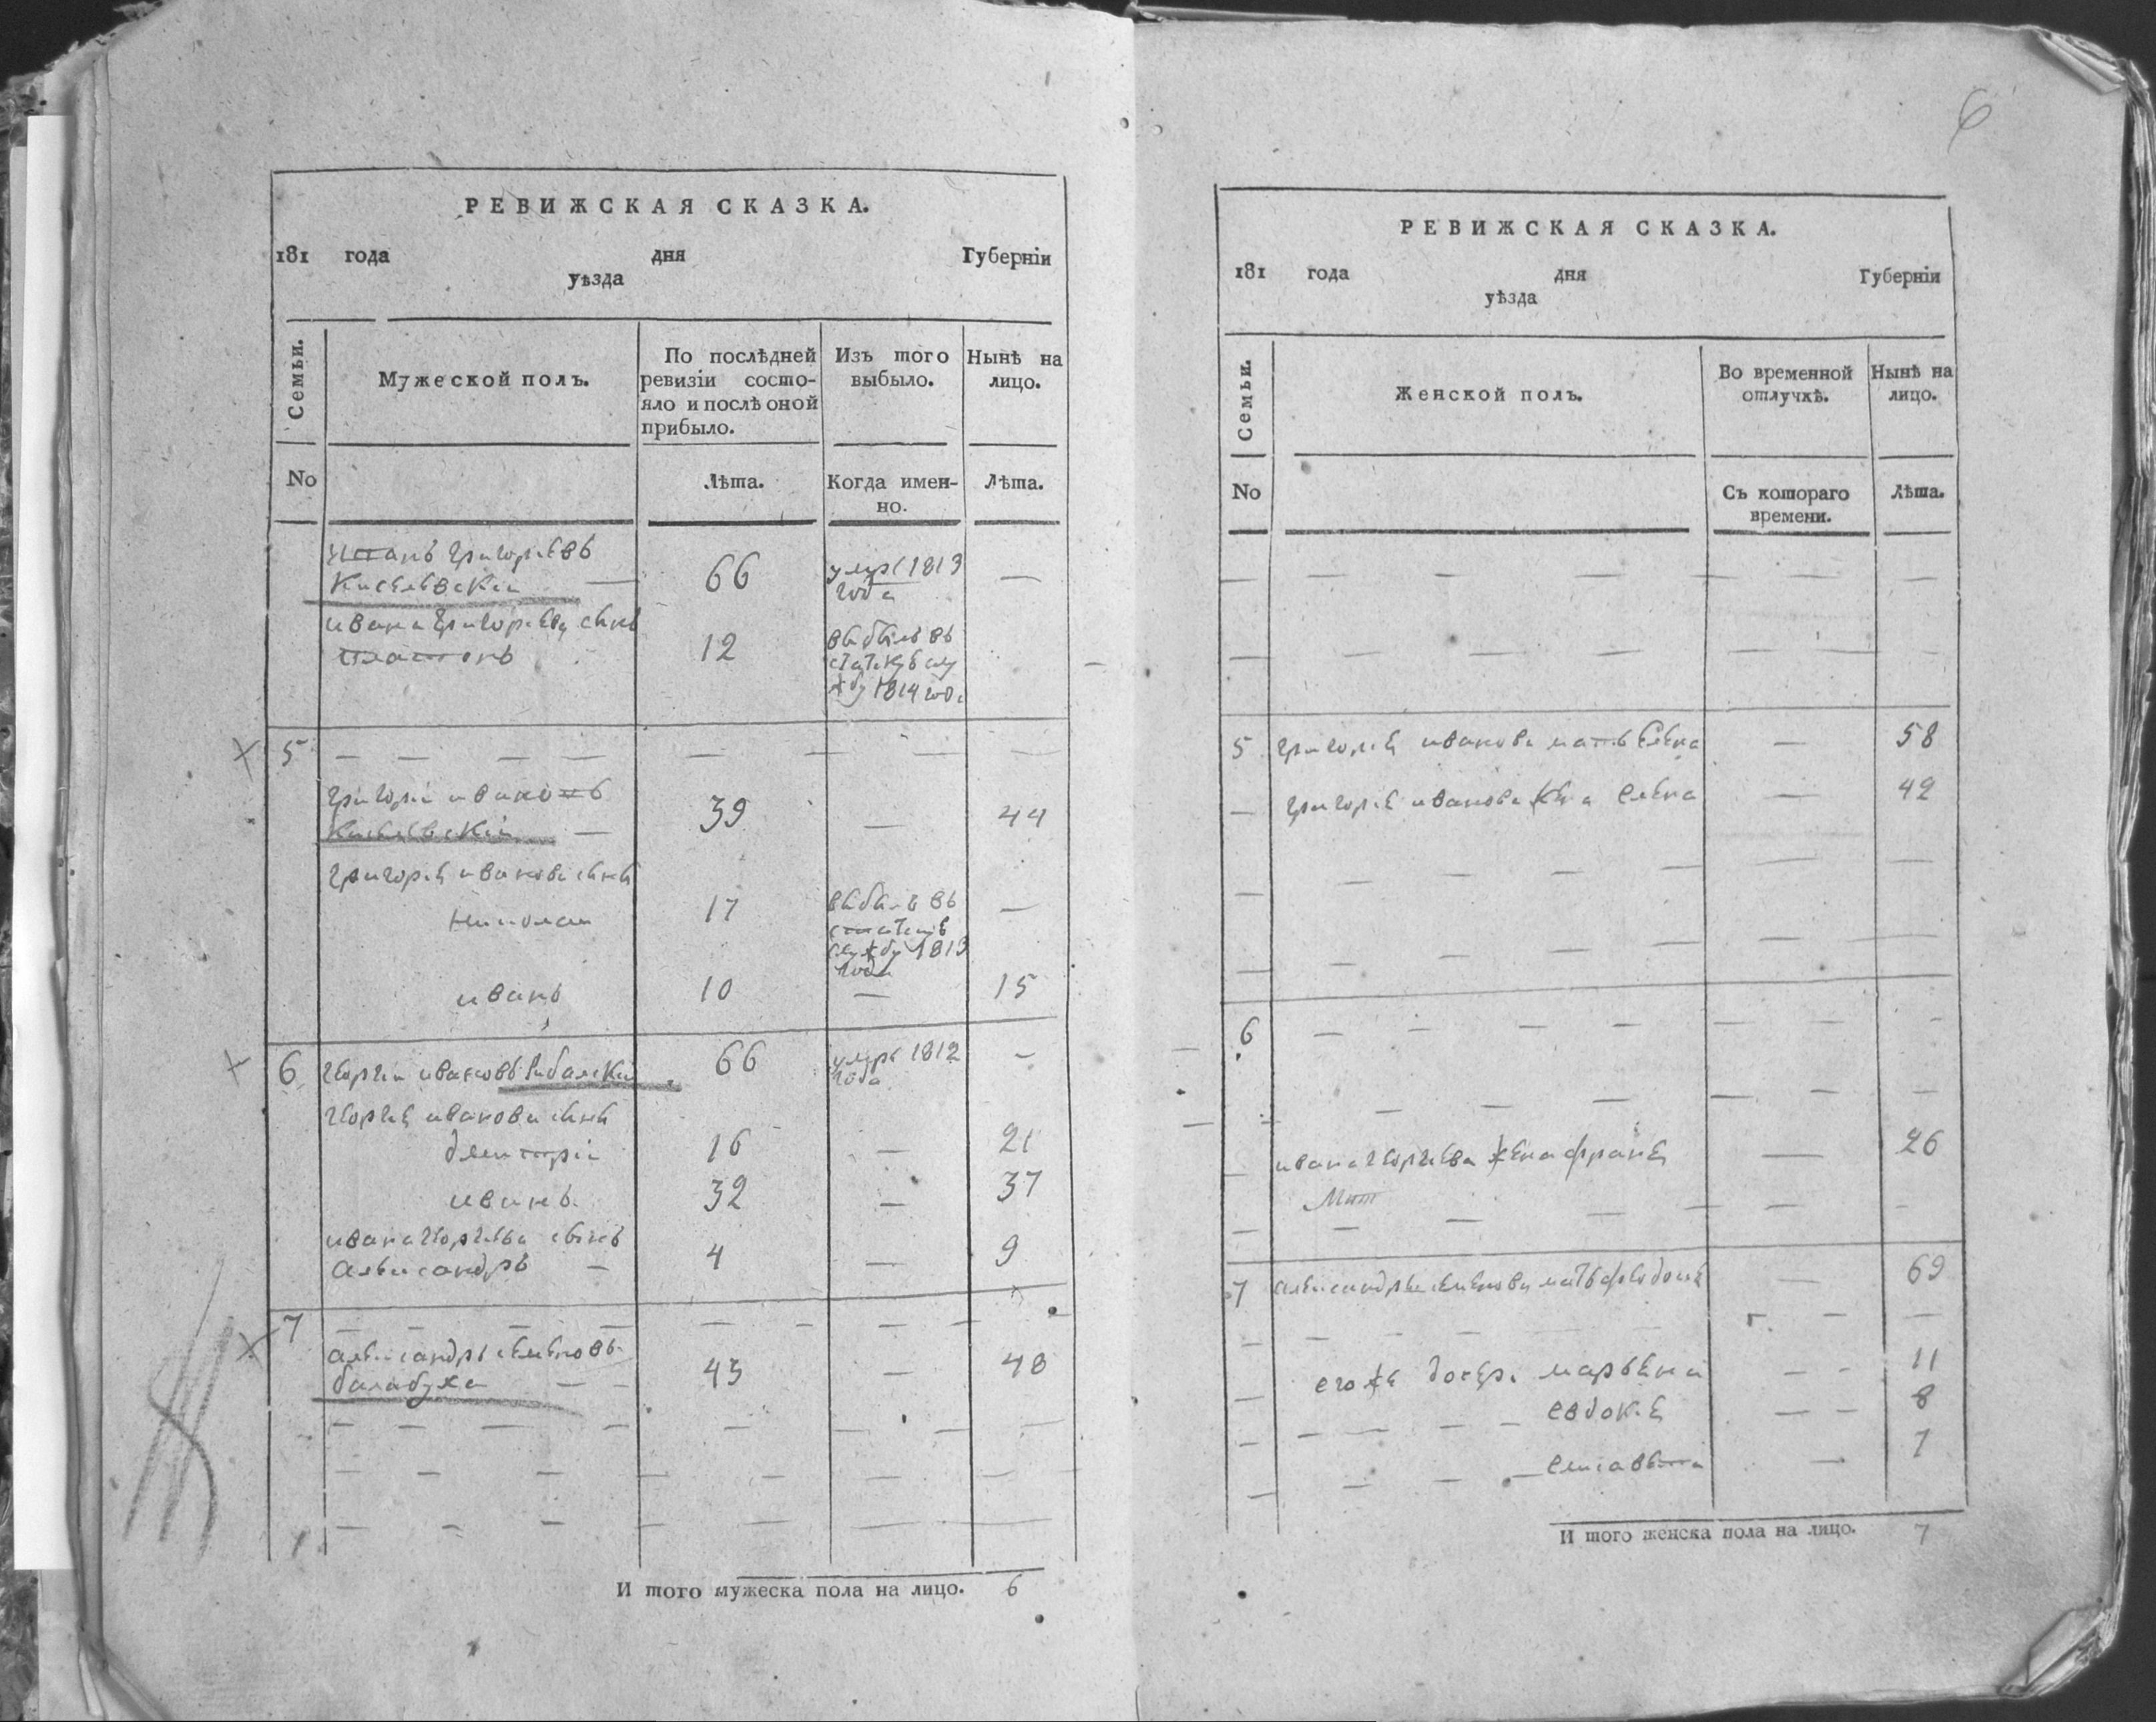 6
РЕВИЖСКАЯ СКАЗКА.
181 года дня Губерніи
уѣзда
Семьи.
Мужеской полъ.
По послѣдней ревизіи состо-
яло и послѣ оной
прибыло.
Изъ того
выбыло.
Нынѣ на
лицо.
No
Лѣта.
Когда имен-
но.
Лѣта.
Григорьевъ
66 1813
года
Ивана Григорьева сынъ
Платонъ 12 выбылъ въ
1814 года
5
Григорій Ивановъ
39 — 44
Григорія Иванова сынъ
Николай 17 выбылъ въ
службу 1813
года
иванъ 10 — 15
6 Георгій ивановъ Рибалскій 66 умре 1812 —
года
Георгія иванова сынъ
Дмитрій 16 — 21
иванъ 32 — 37
ивана Георгіева сынъ
Александръ — 4 — 9
7
Александръ Семеновъ
балабуха 43 — 48
И того мужеска пола на лицо. 6
РЕВИЖСКАЯ СКАЗКА.
181 года дня Губерніи
уѣзда
Семьи.
Женской полъ.
Во временной
отлучкѣ.
Нынѣ на
лицо.
No
Съ котораго
времени.
Лѣта.
5 Григорія иванова мать Елена — 58
Григорія иванова жена Елена — 42
6
ивана Георгіева жена — 26
7 Александра Семенова мать — 69
его же дочери марьяна 11
Евдокія 8
Елисавета 1
И того женска пола на лицо. 7